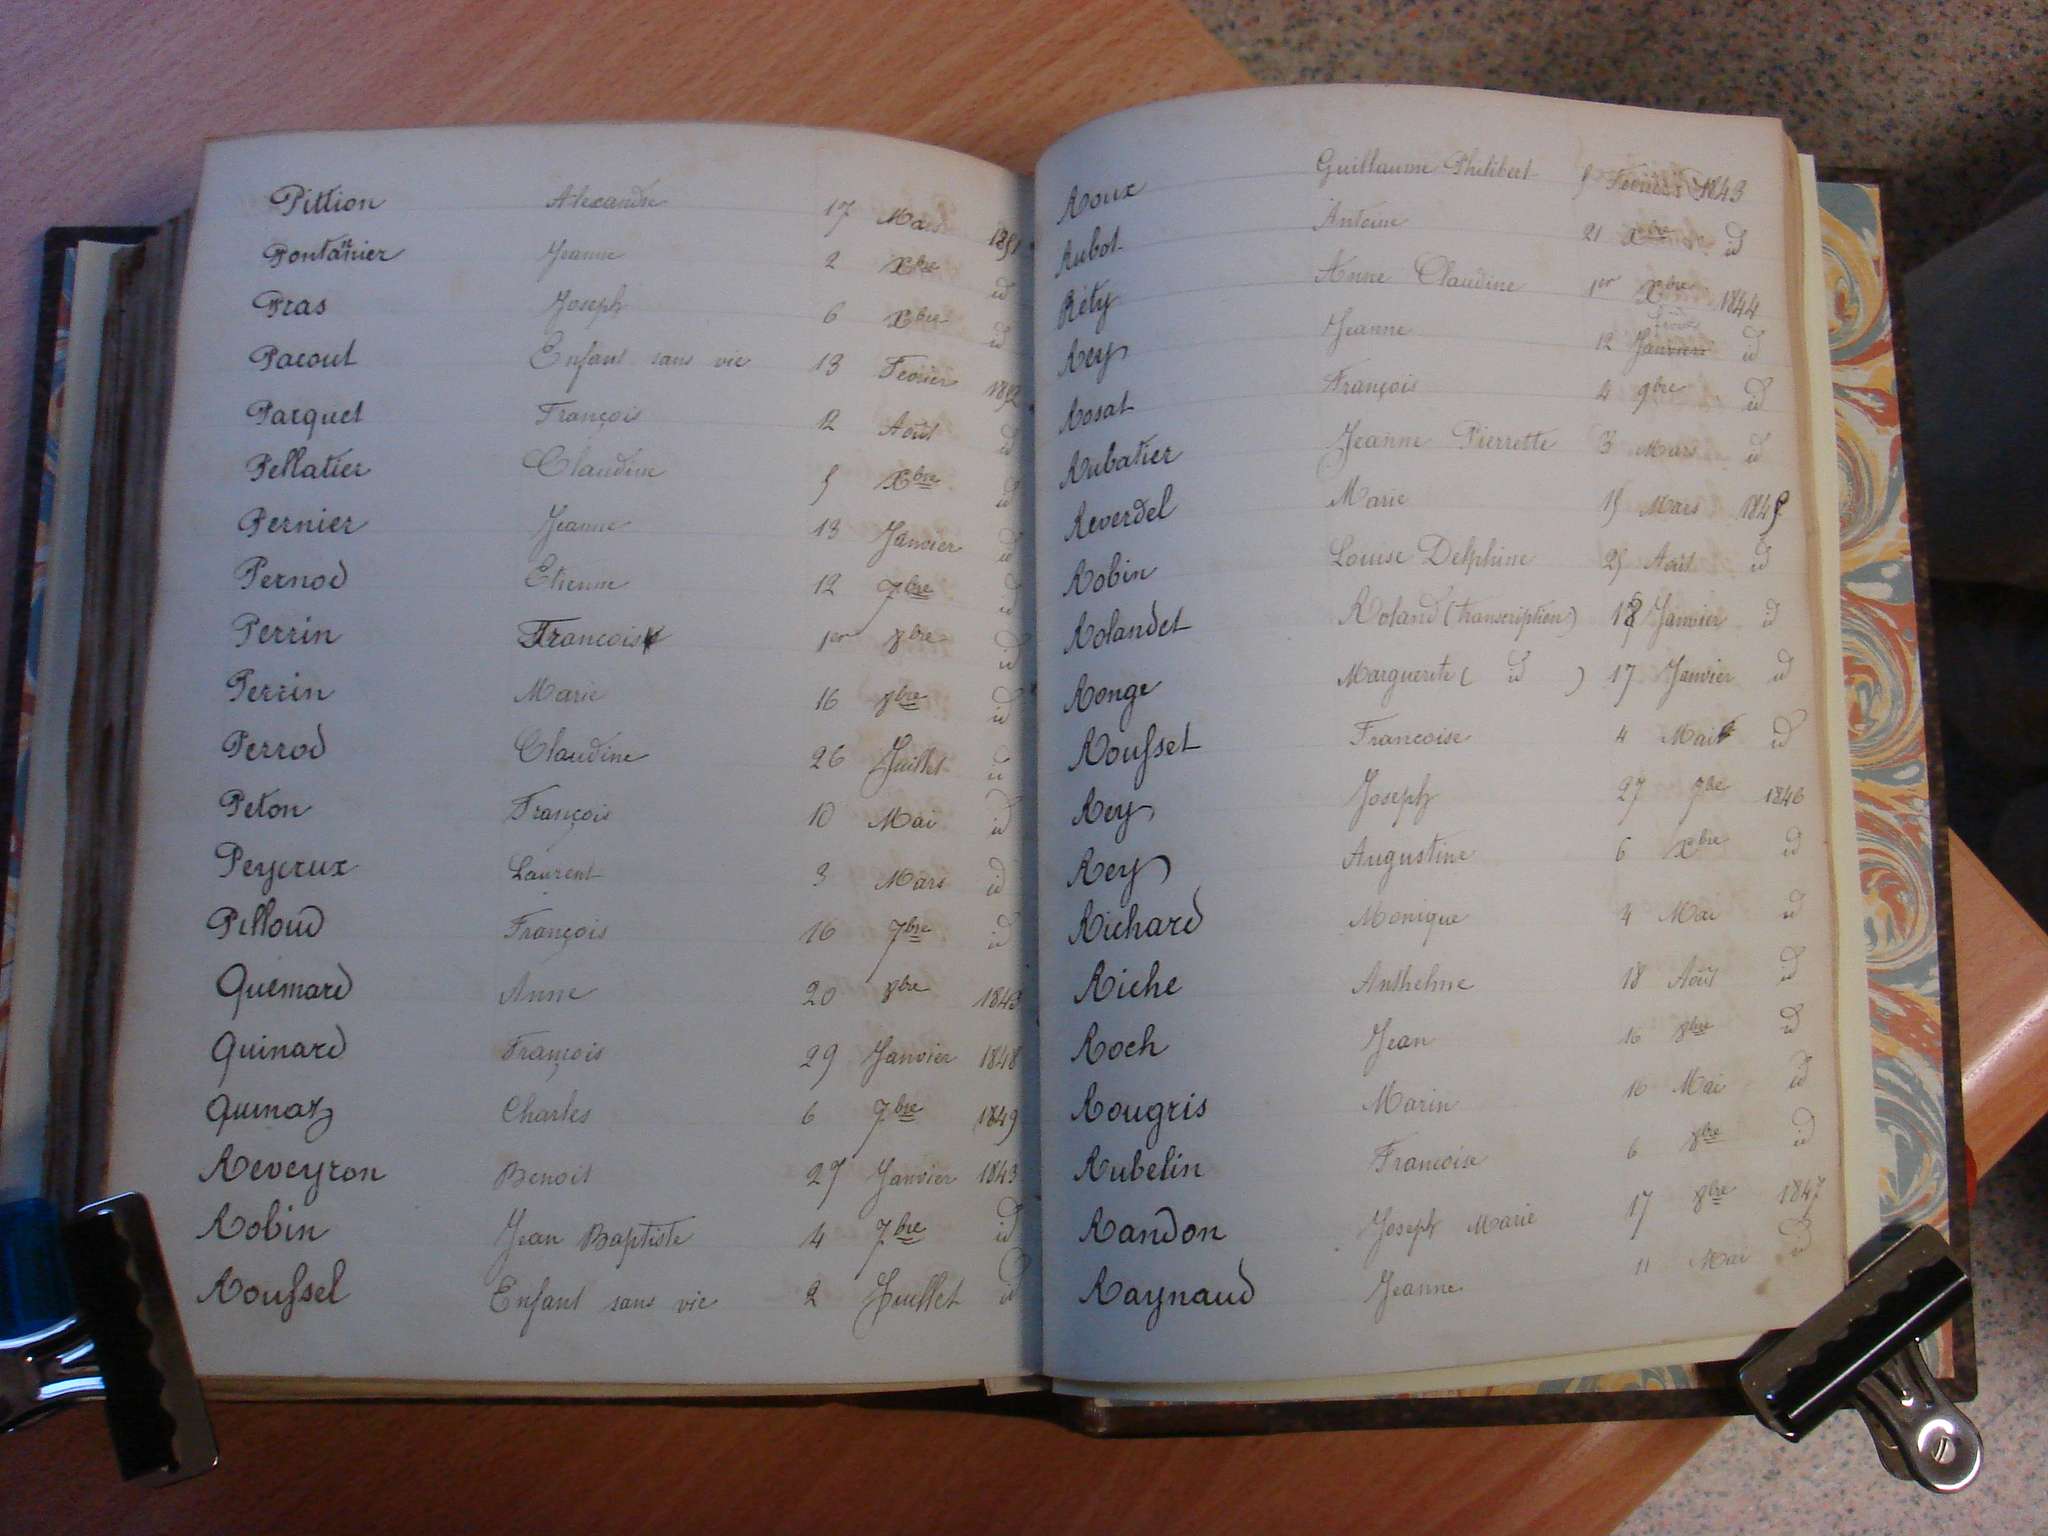 Pittion Alexandre 17 Mars 1851
Pontannier Jeanne 2 Xbre id
Pras Joseph 6 Xbre id
Pacout Enfant sans vie 13 Fevrier 1852
Parquet François 12 Août id
Pellatier Claudine 5 Xbre id
Pernier Jeanne 13 Janvier id
Pernod Etienne 12 7bre id
Perrin Francois 1er 8bre id
Perrin Marie 16 8bre id
Perrod Claudine 26 Juillet id
Peton François 10 Mai id
Peyerux Laurent 3 Mars id
Pilloud François 16 7bre id
Quémard Anne 20 8bre 1843
Quinard François 29 Janvier 1848
Quinaz Charles 6 7bre 1849
Reveyron Benoit 27 Janvier 1843
Robin Jean Baptiste 4 7bre id
Roussel Enfant sans vie 2 Juillet id
Roux Guillaume Philibert 5 Fevrier 1843
Rubot Antoine 21 Xbre id
Réty Anne Claudine 1er Xbre 1844
Rey Jeanne 12 Janvier id
Rosat François 4 9bre id
Rubatier Jeanne Pierrette 3 Mars id
Reverdel Marie 15 Mars 1845
Robin Louise Delphine 25 Août id
Rolandet Roland (transcription) Janvier id
Ronge Marguerite ( id ) 17 Janvier id
Rousset Francoise 4 Mai id
Rey Joseph 27 9bre 1846
Rey Augustine 6 Xbre id
Richard Monique 4 Mai id
Riche Anthelme 18 Août id
Roch Jean 16 8bre id
Rougris Marin 16 Mai id
Rubelin Francoise 6 8bre id
Randon Joseph Marie 17 8bre 1847
Raynaud Jeanne 11 Mai id